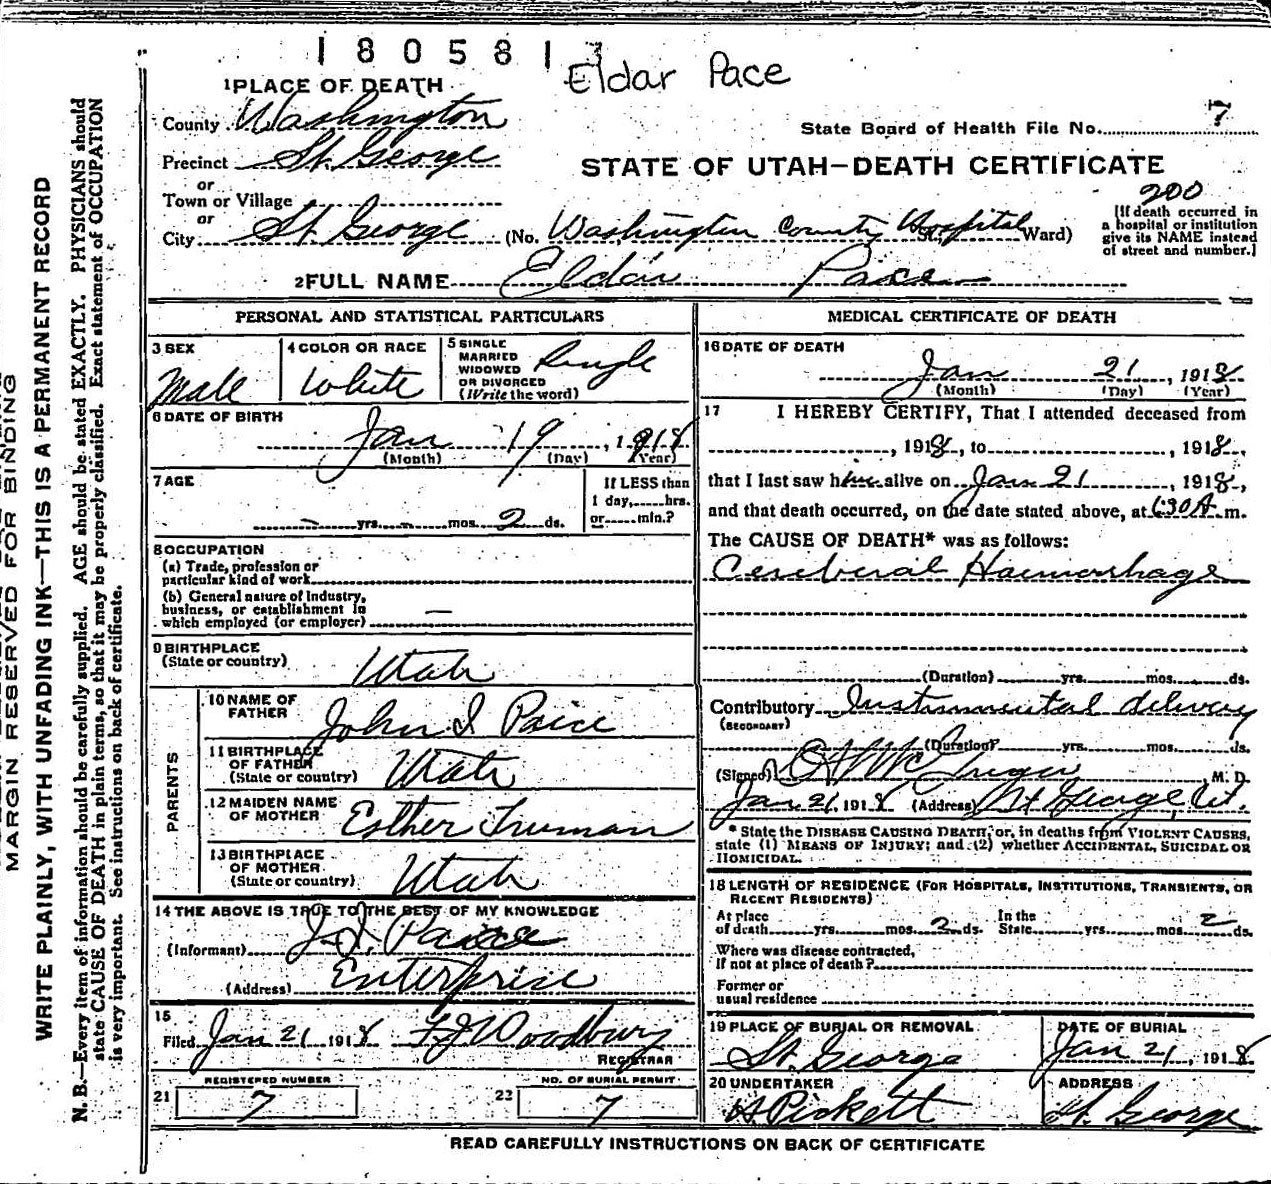 180581
Eldar Pace
1 PLACE OF DEATH
County Washington
State Board of Health File No. 7
Precinct St. George
STATE OF UTAH—DEATH CERTIFICATE
or
Town or Village
200
or
City St. George (No. Washington County Hospital St., Ward)
[If death occurred in
a hospital or institution
give its NAME instead
of street and number.]
2 FULL NAME Eldar Pace
PERSONAL AND STATISTICAL PARTICULARS
3 SEX
Male
4 COLOR OR RACE
White
5 SINGLE
MARRIED
WIDOWED
OR DIVORCED
(Write the word)
Single
6 DATE OF BIRTH
Jan 19, 1918
(Month) (Day) (Year)
7 AGE
— yrs. — mos. 2 ds.
If LESS than
1 day,.....hrs.
or.....min.?
8 OCCUPATION
(a) Trade, profession or
particular kind of work
(b) General nature of industry,
business, or establishment in
which employed (or employer) —
9 BIRTHPLACE
(State or country)
Utah
PARENTS
10 NAME OF
FATHER
John I Pace
11 BIRTHPLACE
OF FATHER
(State or country)
Utah
12 MAIDEN NAME
OF MOTHER
Esther Truman
13 BIRTHPLACE
OF MOTHER
(State or country)
Utah
14 THE ABOVE IS TRUE TO THE BEST OF MY KNOWLEDGE
(Informant) J. I. Pace
(Address) Enterprise
15
Filed Jan 21 1918 F J Woodbury
REGISTRAR
REGISTERED NUMBER
21 7
NO. OF BURIAL PERMIT
22 7
MEDICAL CERTIFICATE OF DEATH
16 DATE OF DEATH
Jan 21, 1918
(Month) (Day) (Year)
17 I HEREBY CERTIFY, That I attended deceased from
, 1918, to , 1918,
that I last saw him alive on Jan 21, 1918,
and that death occurred, on the date stated above, at 6 30 A m.
The CAUSE OF DEATH* was as follows:
Cerebral Haemorrhage
(Duration) yrs. mos. ds.
Contributory Instrumental delivery
(SECONDARY)
(Duration) yrs. mos. ds.
(Signed) McGregor, M. D.
Jan 21, 1918 (Address) St George, Ut.
* State the DISEASE CAUSING DEATH, or, in deaths from VIOLENT CAUSES,
state (1) MEANS OF INJURY; and (2) whether ACCIDENTAL, SUICIDAL OR
HOMICIDAL.
18 LENGTH OF RESIDENCE (FOR HOSPITALS, INSTITUTIONS, TRANSIENTS, OR
RECENT RESIDENTS)
At place
of death yrs. mos. 2 ds.
In the
State yrs. mos. 2 ds.
Where was disease contracted,
If not at place of death?
Former or
usual residence
19 PLACE OF BURIAL OR REMOVAL
St. George
DATE OF BURIAL
Jan 21, 1918
20 UNDERTAKER
A Pickett
ADDRESS
St. George
READ CAREFULLY INSTRUCTIONS ON BACK OF CERTIFICATE
MARGIN RESERVED FOR BINDING
WRITE PLAINLY, WITH UNFADING INK—THIS IS A PERMANENT RECORD
N. B.—Every item of information should be carefully supplied. AGE should be stated EXACTLY. PHYSICIANS should
state CAUSE OF DEATH in plain terms, so that it may be properly classified. Exact statement of OCCUPATION
is very important. See instructions on back of certificate.